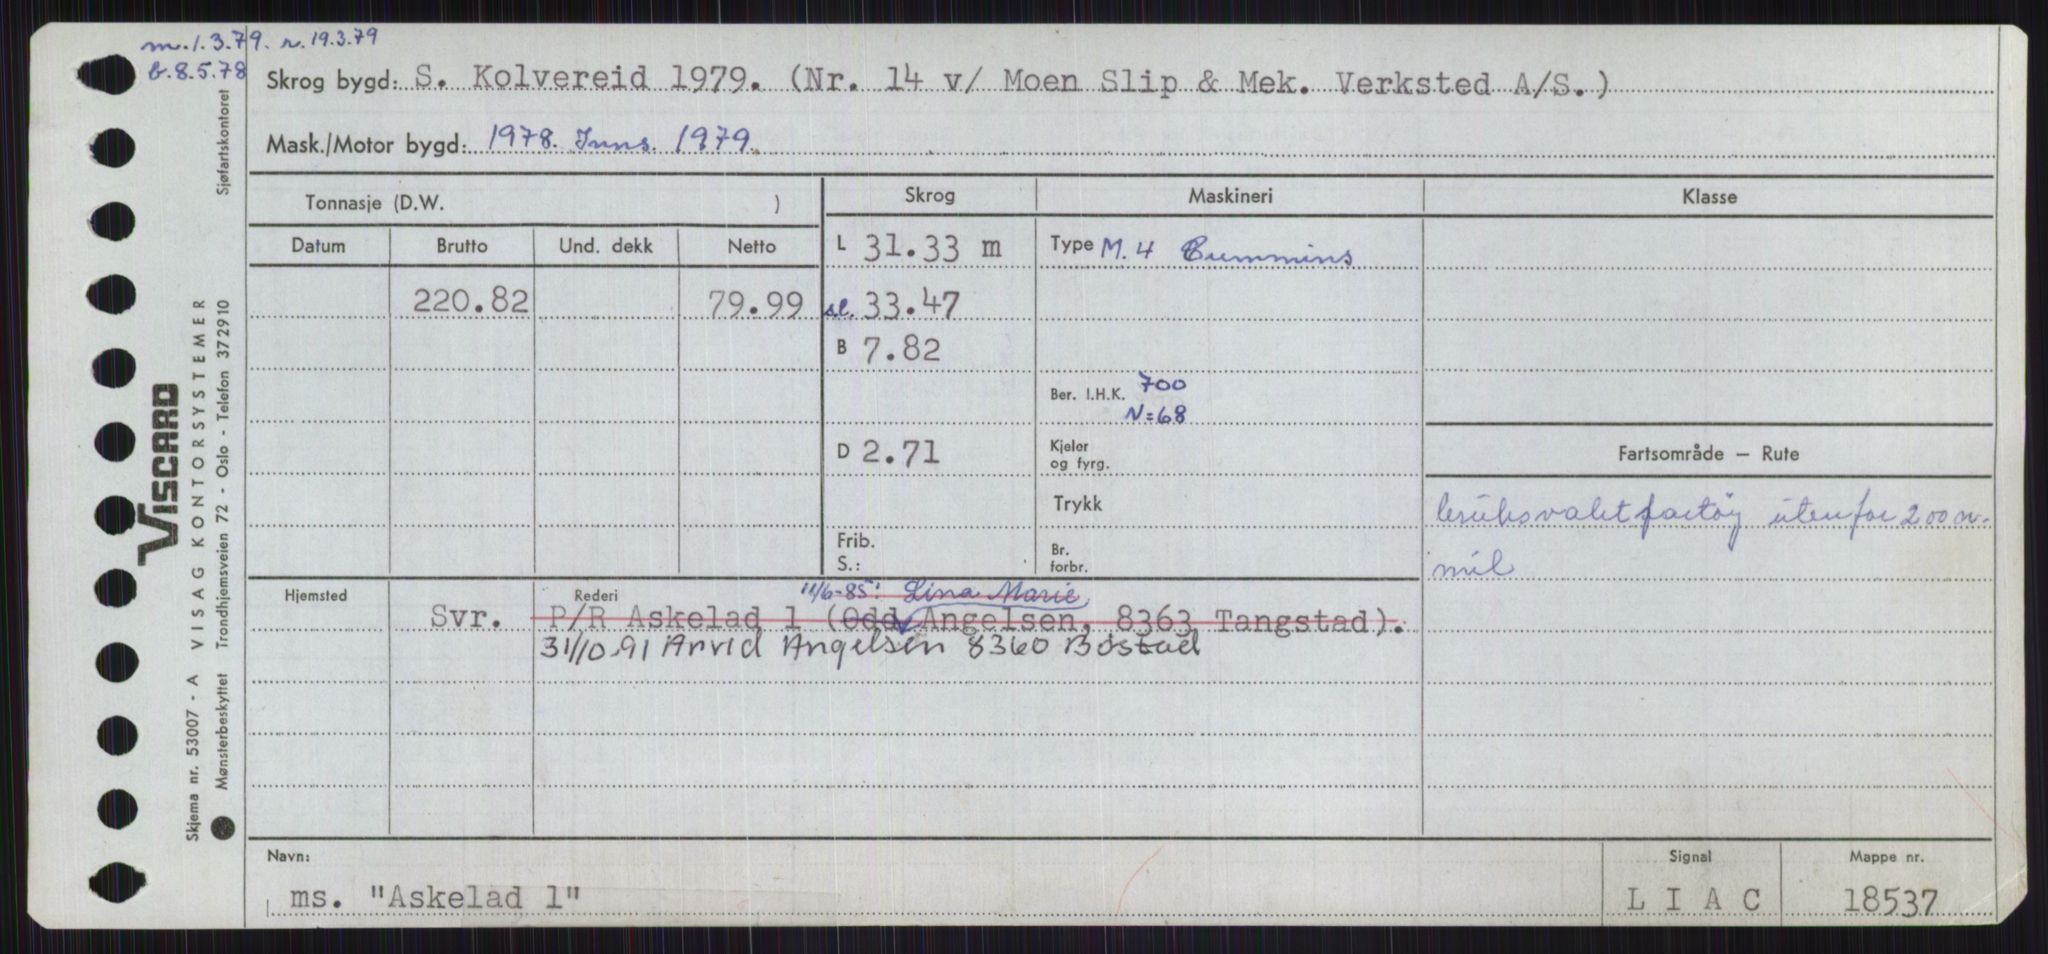 m. 1.3.79. r. 19.3.79
b. 8.5.78
Skrog bygd: S. Kolvereid 1979. (Nr. 14 v/ Moen Slip & Mek. Verksted A/S.)
Mask./Motor bygd: 1978. Inns. 1979.
Tonnasje (D.W. )
Skrog
Maskineri
Klasse
Datum Brutto Und. dekk Netto
L 31.33 m
Type M. 4 Cummins
220.82 79.99
sl. 33.47
B 7.82
Ber. I.H.K. 700
N=68
D 2.71
Kjeler
og fyrg.
Fartsområde — Rute
Trykk
bruksvaktfartøy utenfor 200 n.
mil
Frib.
S.:
Br.
forbr.
Hjemsted
Rederi
11/6-85: Lina Marie
Svr. P/R Askelad 1 (Odd Angelsen, 8363 Tangstad).
31/10.91 Arvid Angelsen 8360 Bøstad
Navn:
ms. "Askelad 1"
Signal
L I A C
Mappe nr.
18537
Skjema nr. 53007 - A VISAG KONTORSYSTEMER Sjøfartskontoret
Mønsterbeskyttet Trondhjemsveien 72 - Oslo - Telefon 372910
VISCARD